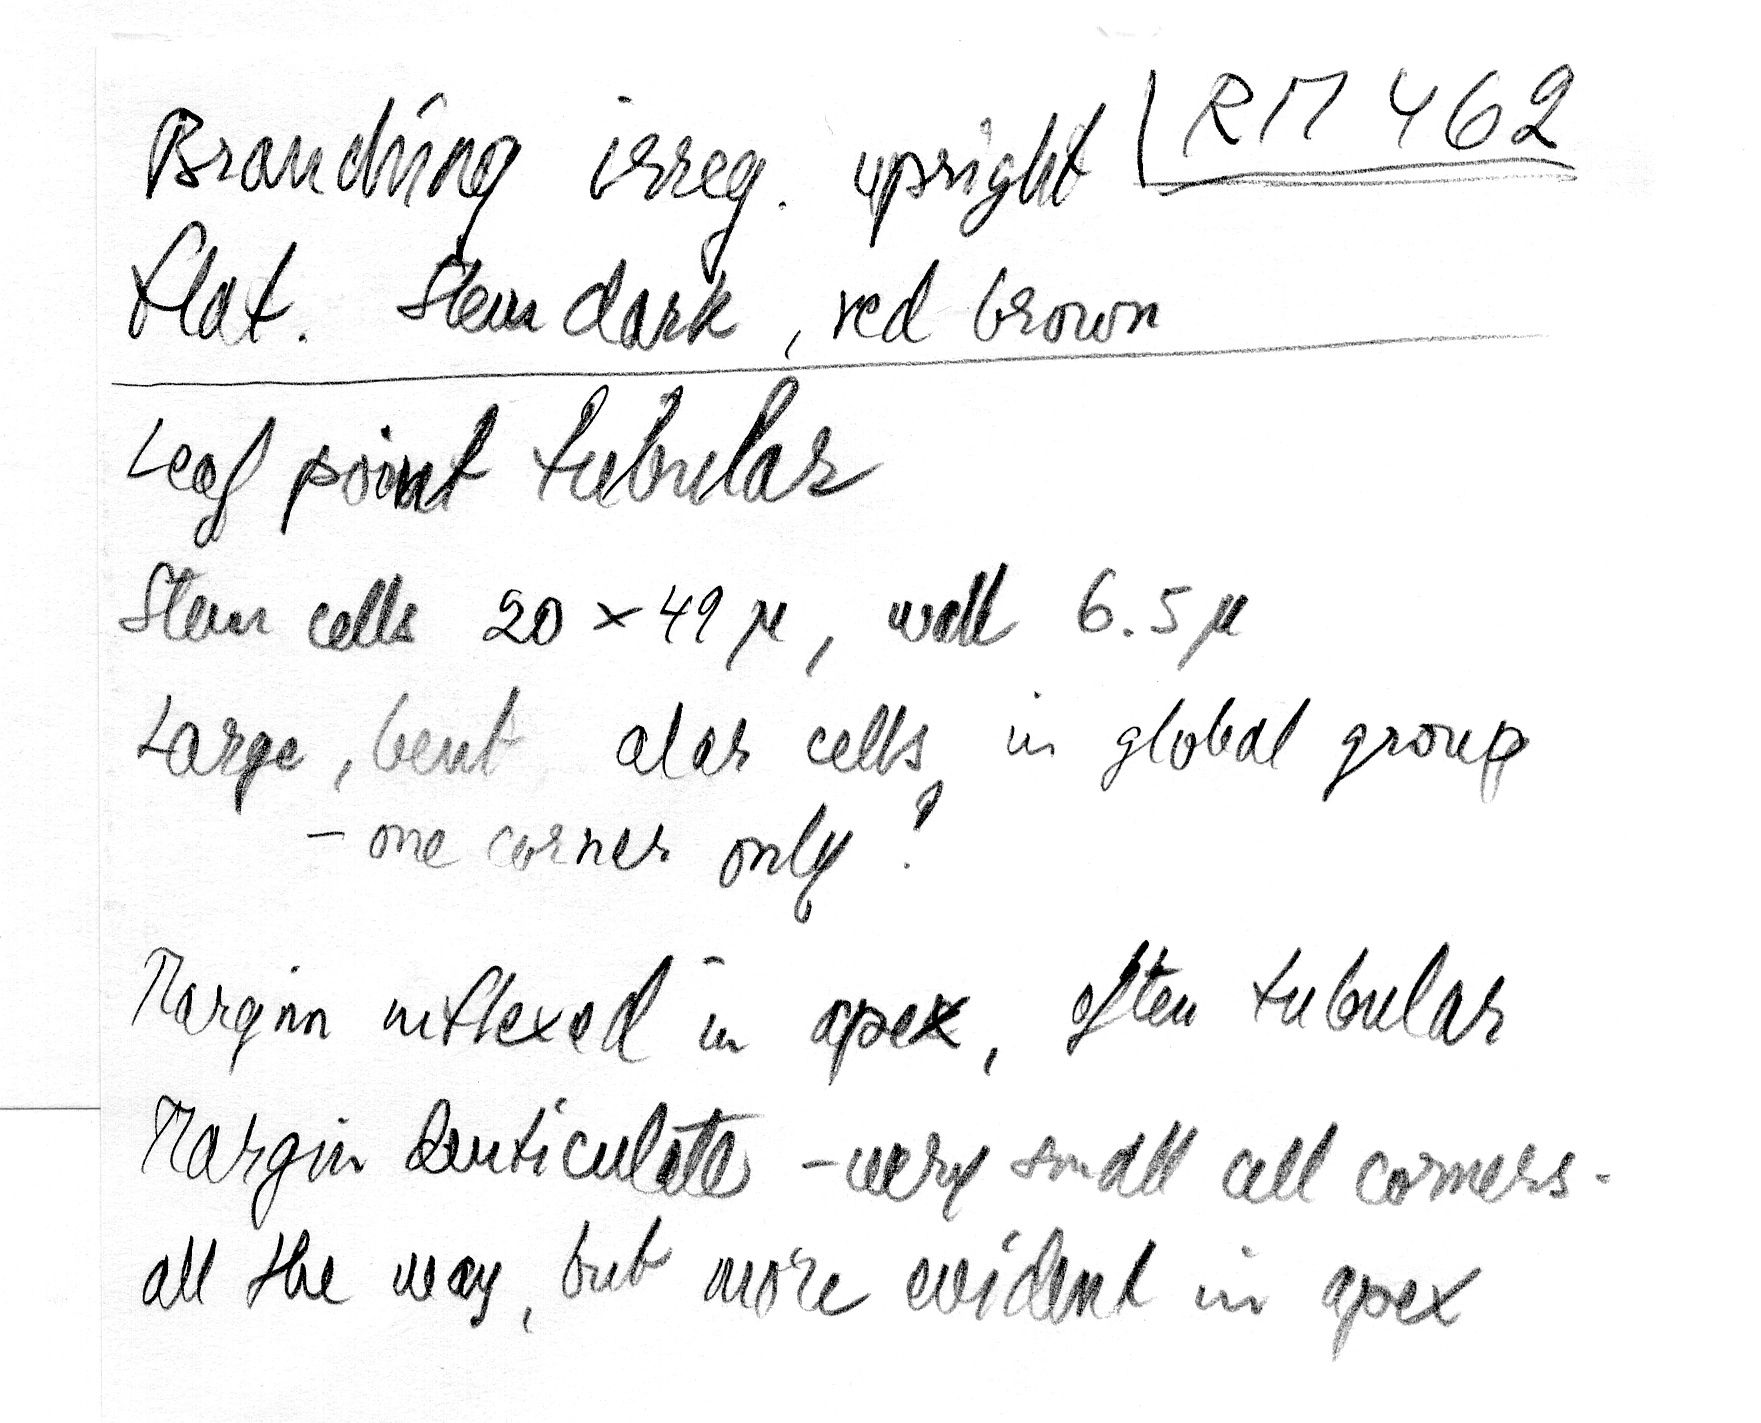 Branching irreg. upright RM 462
flat. Stem dark, red brown
Leaf point tubular
Stem cells 20 × 49 µ, wall 6.5 µ
Large, bent alar cells, in global group
- one corner only?
Margin inflexed in apex, often tubular
Margin denticulate - very small cell corners -
all the way, but more evident in apex